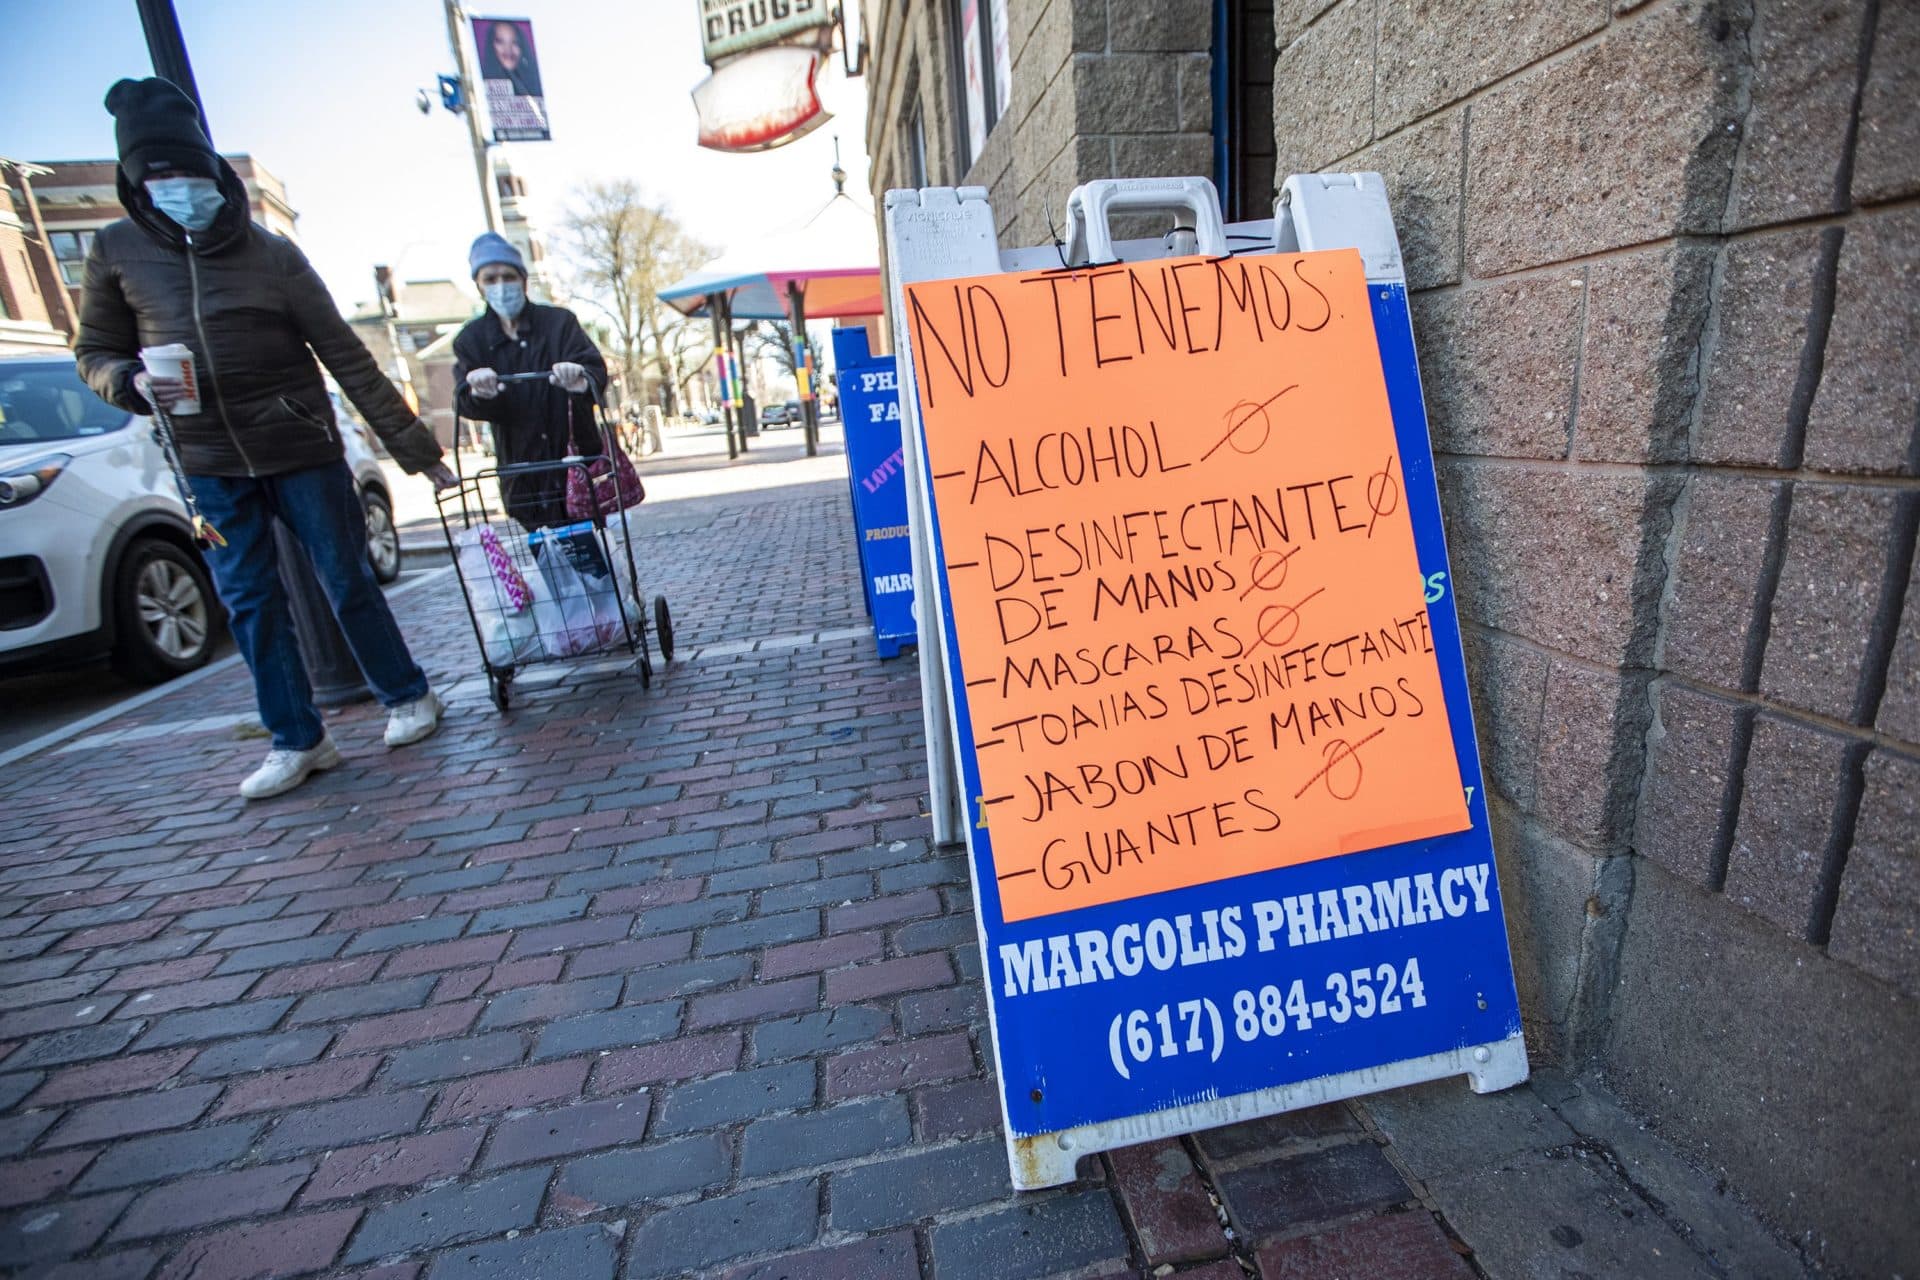 DRUGS
VIGNICADE
NO TENEMOS:
-ALCOHOL Ø
-DESINFECTANTE Ø
DE MANOS Ø
-MASCARAS Ø
-TOAIIAS DESINFECTANTE
-JABON DE MANOS
-GUANTES Ø
MARGOLIS PHARMACY
(617) 884-3524
PH
FA
LOTT
PRODUC
MAR